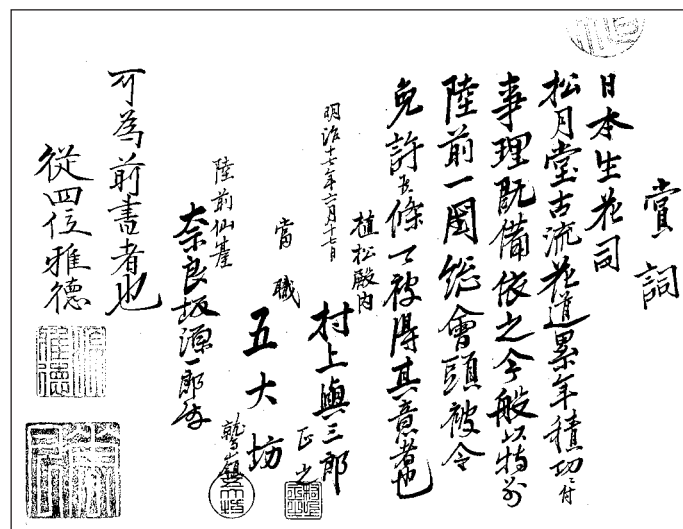 賞詞
日本生花司
松月堂古流花道累年積功ニ付
事理既備依之今般以特別
陸前一國総會頭被令
免許候條可被得其意者也
植松殿内
明治十七年六月十七日
村上與三郎
正之
當職
五大坊
鷲嶺
陸前仙臺
奈良坂源一郎
可為前書者也
從四位雅德